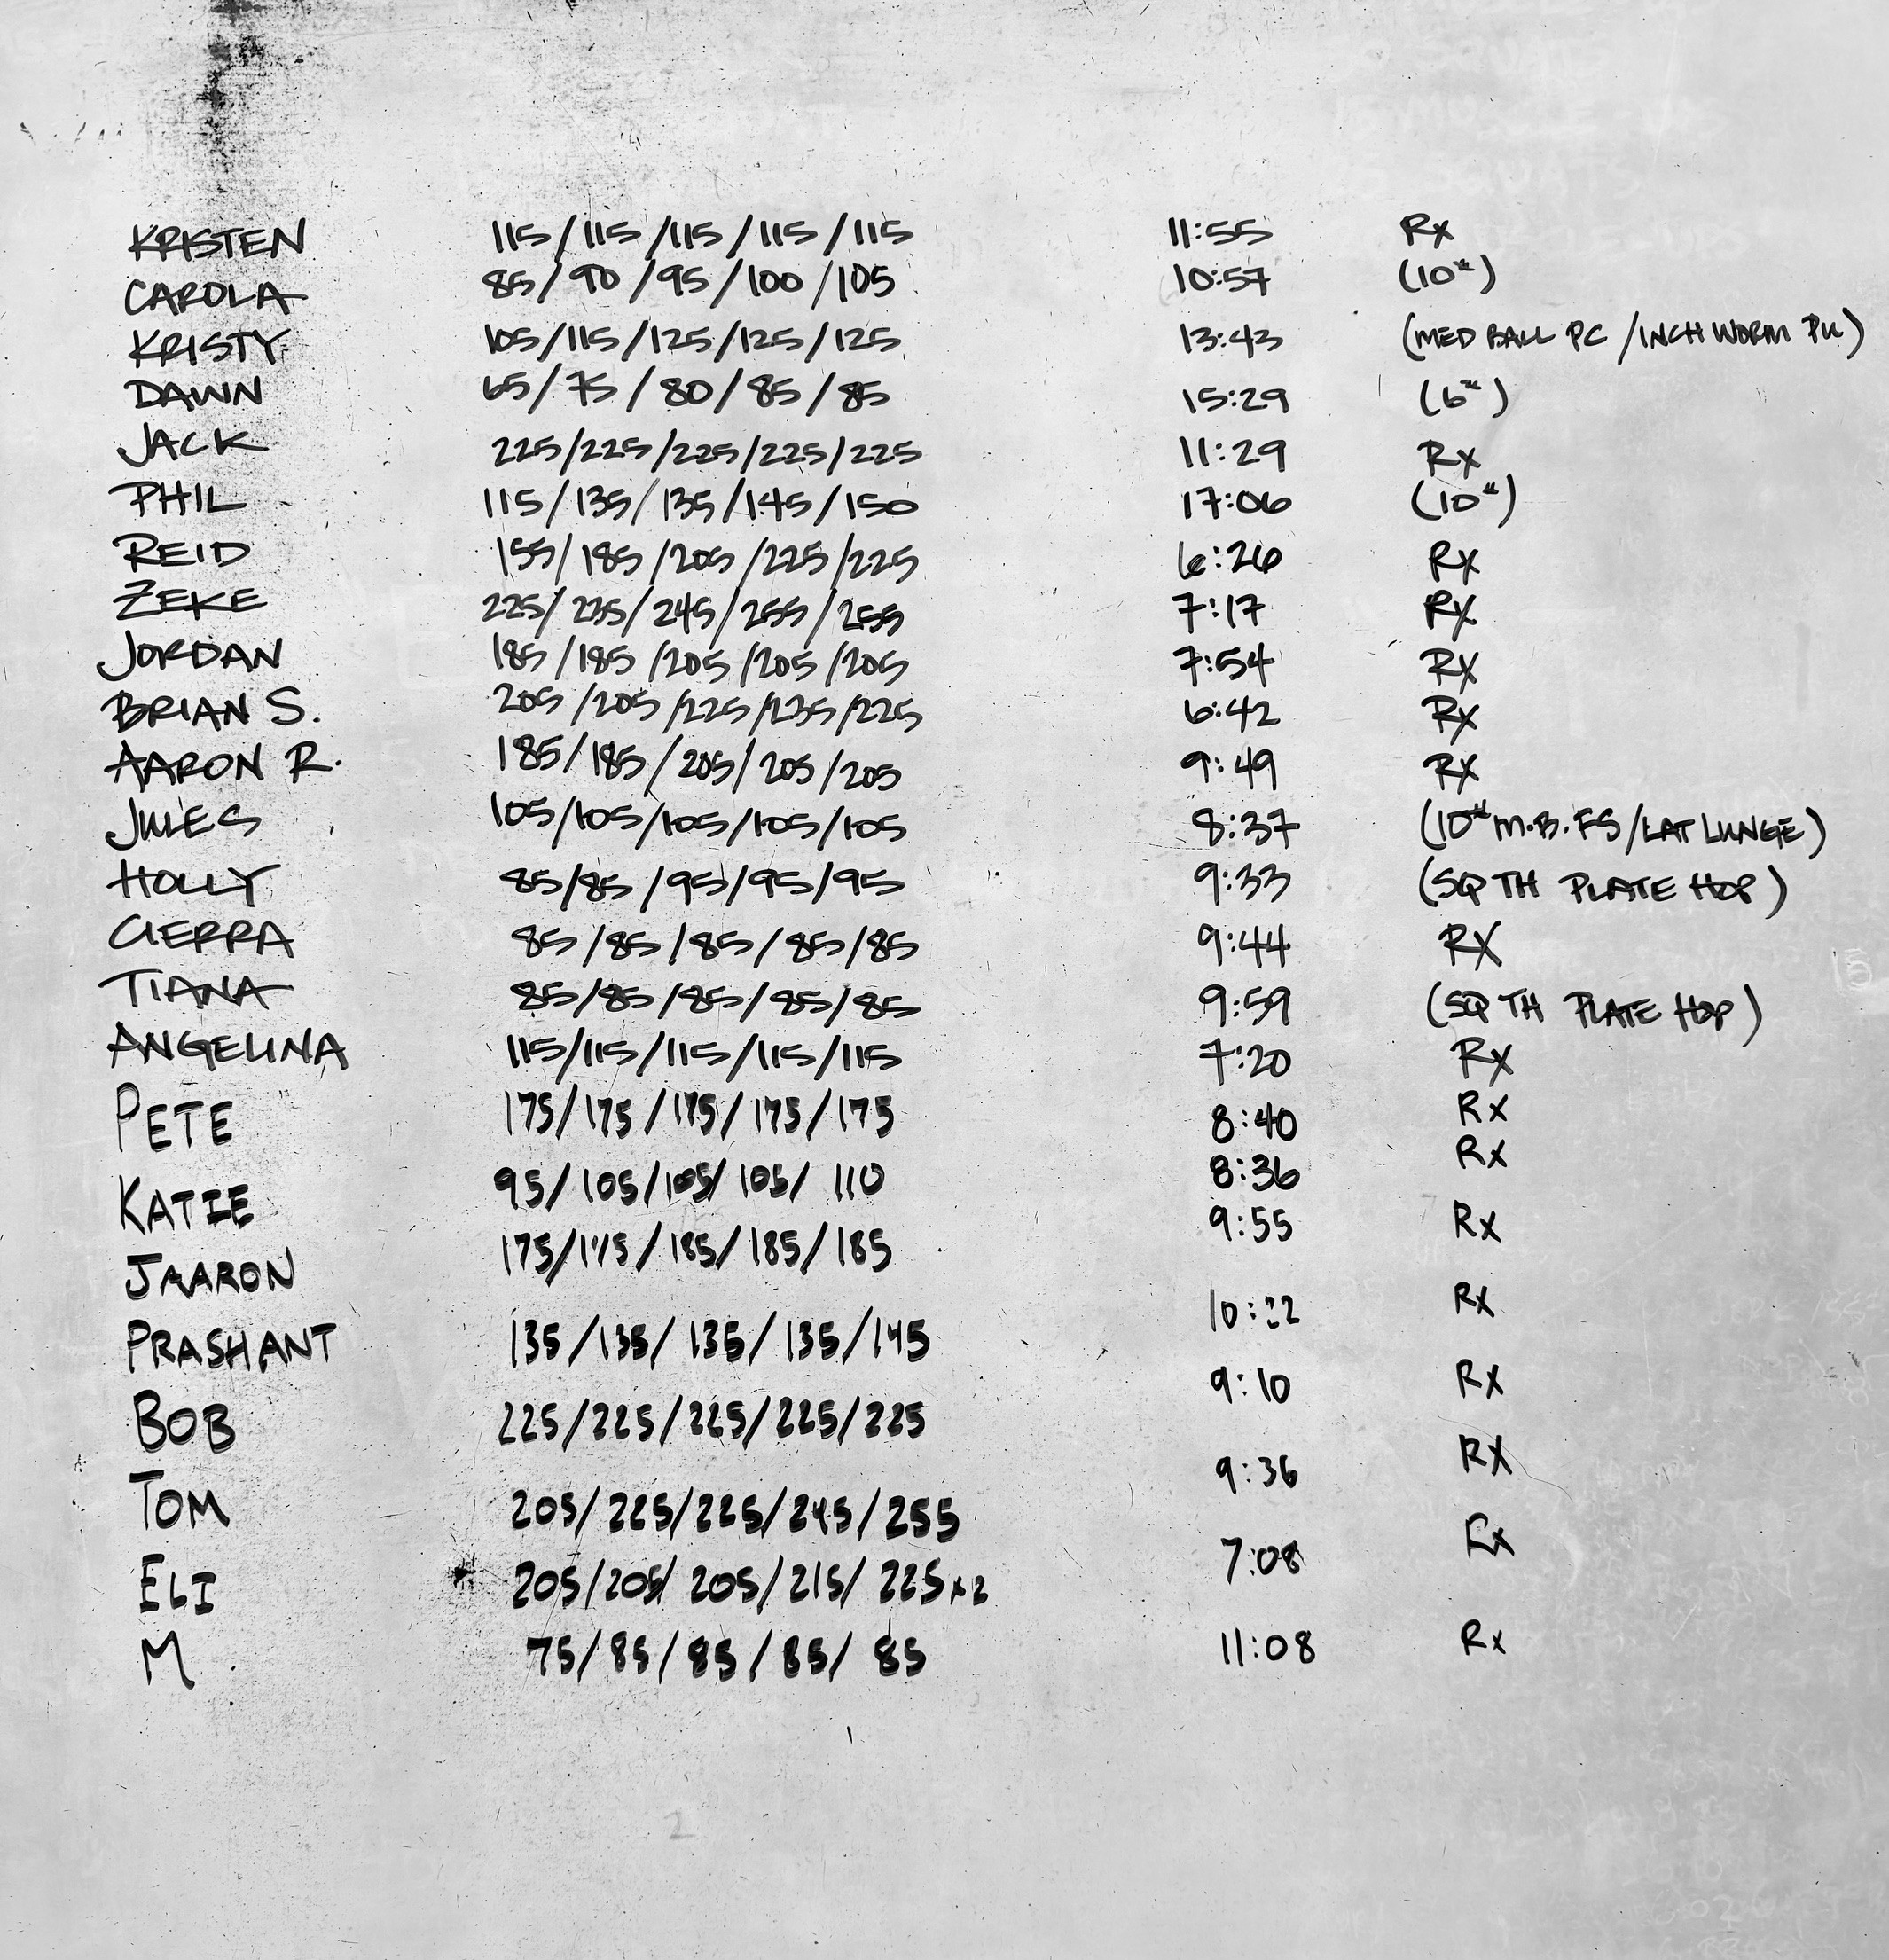 KRISTEN 115/115/115/115/115 11:55 Rx
CAROLA 85/90/95/100/105 10:57 (10#)
KRISTY 105/115/125/125/125 13:43 (MED BALL PC /INCH WORM PU)
DAWN 65/75/80/85/85 15:29 (6#)
JACK 225/225/225/225/225 11:29 Rx
PHIL 115/135/135/145/150 17:06 (10#)
REID 155/185/205/225/225 6:26 Rx
ZEKE 225/235/245/255/255 7:17 Rx
JORDAN 185/185/205/205/205 7:54 Rx
BRIAN S. 205/205/225/235/225 6:42 Rx
AARON R. 185/185/205/205/205 9:49 Rx
JULES 105/105/105/105/105 8:37 (10# M.B. FS/LAT LUNGE)
HOLLY 85/85/95/95/95 9:33 (SQ TH PLATE HOP)
CIERRA 85/85/85/85/85 9:44 RX
TIANA 85/85/85/85/85 9:59 (SQ TH PLATE HOP)
ANGELINA 115/115/115/115/115 7:20 Rx
PETE 175/175/175/175/175 8:40 Rx
KATIE 95/105/105/105/110 8:36 Rx
JAARON 175/175/185/185/185 9:55 Rx
PRASHANT 135/135/135/135/145 10:22 Rx
BOB 225/225/225/225/225 9:10 Rx
TOM 205/225/225/245/255 9:36 RX
ELI 205/205/205/215/225x2 7:08 Rx
M 75/85/85/85/85 11:08 Rx